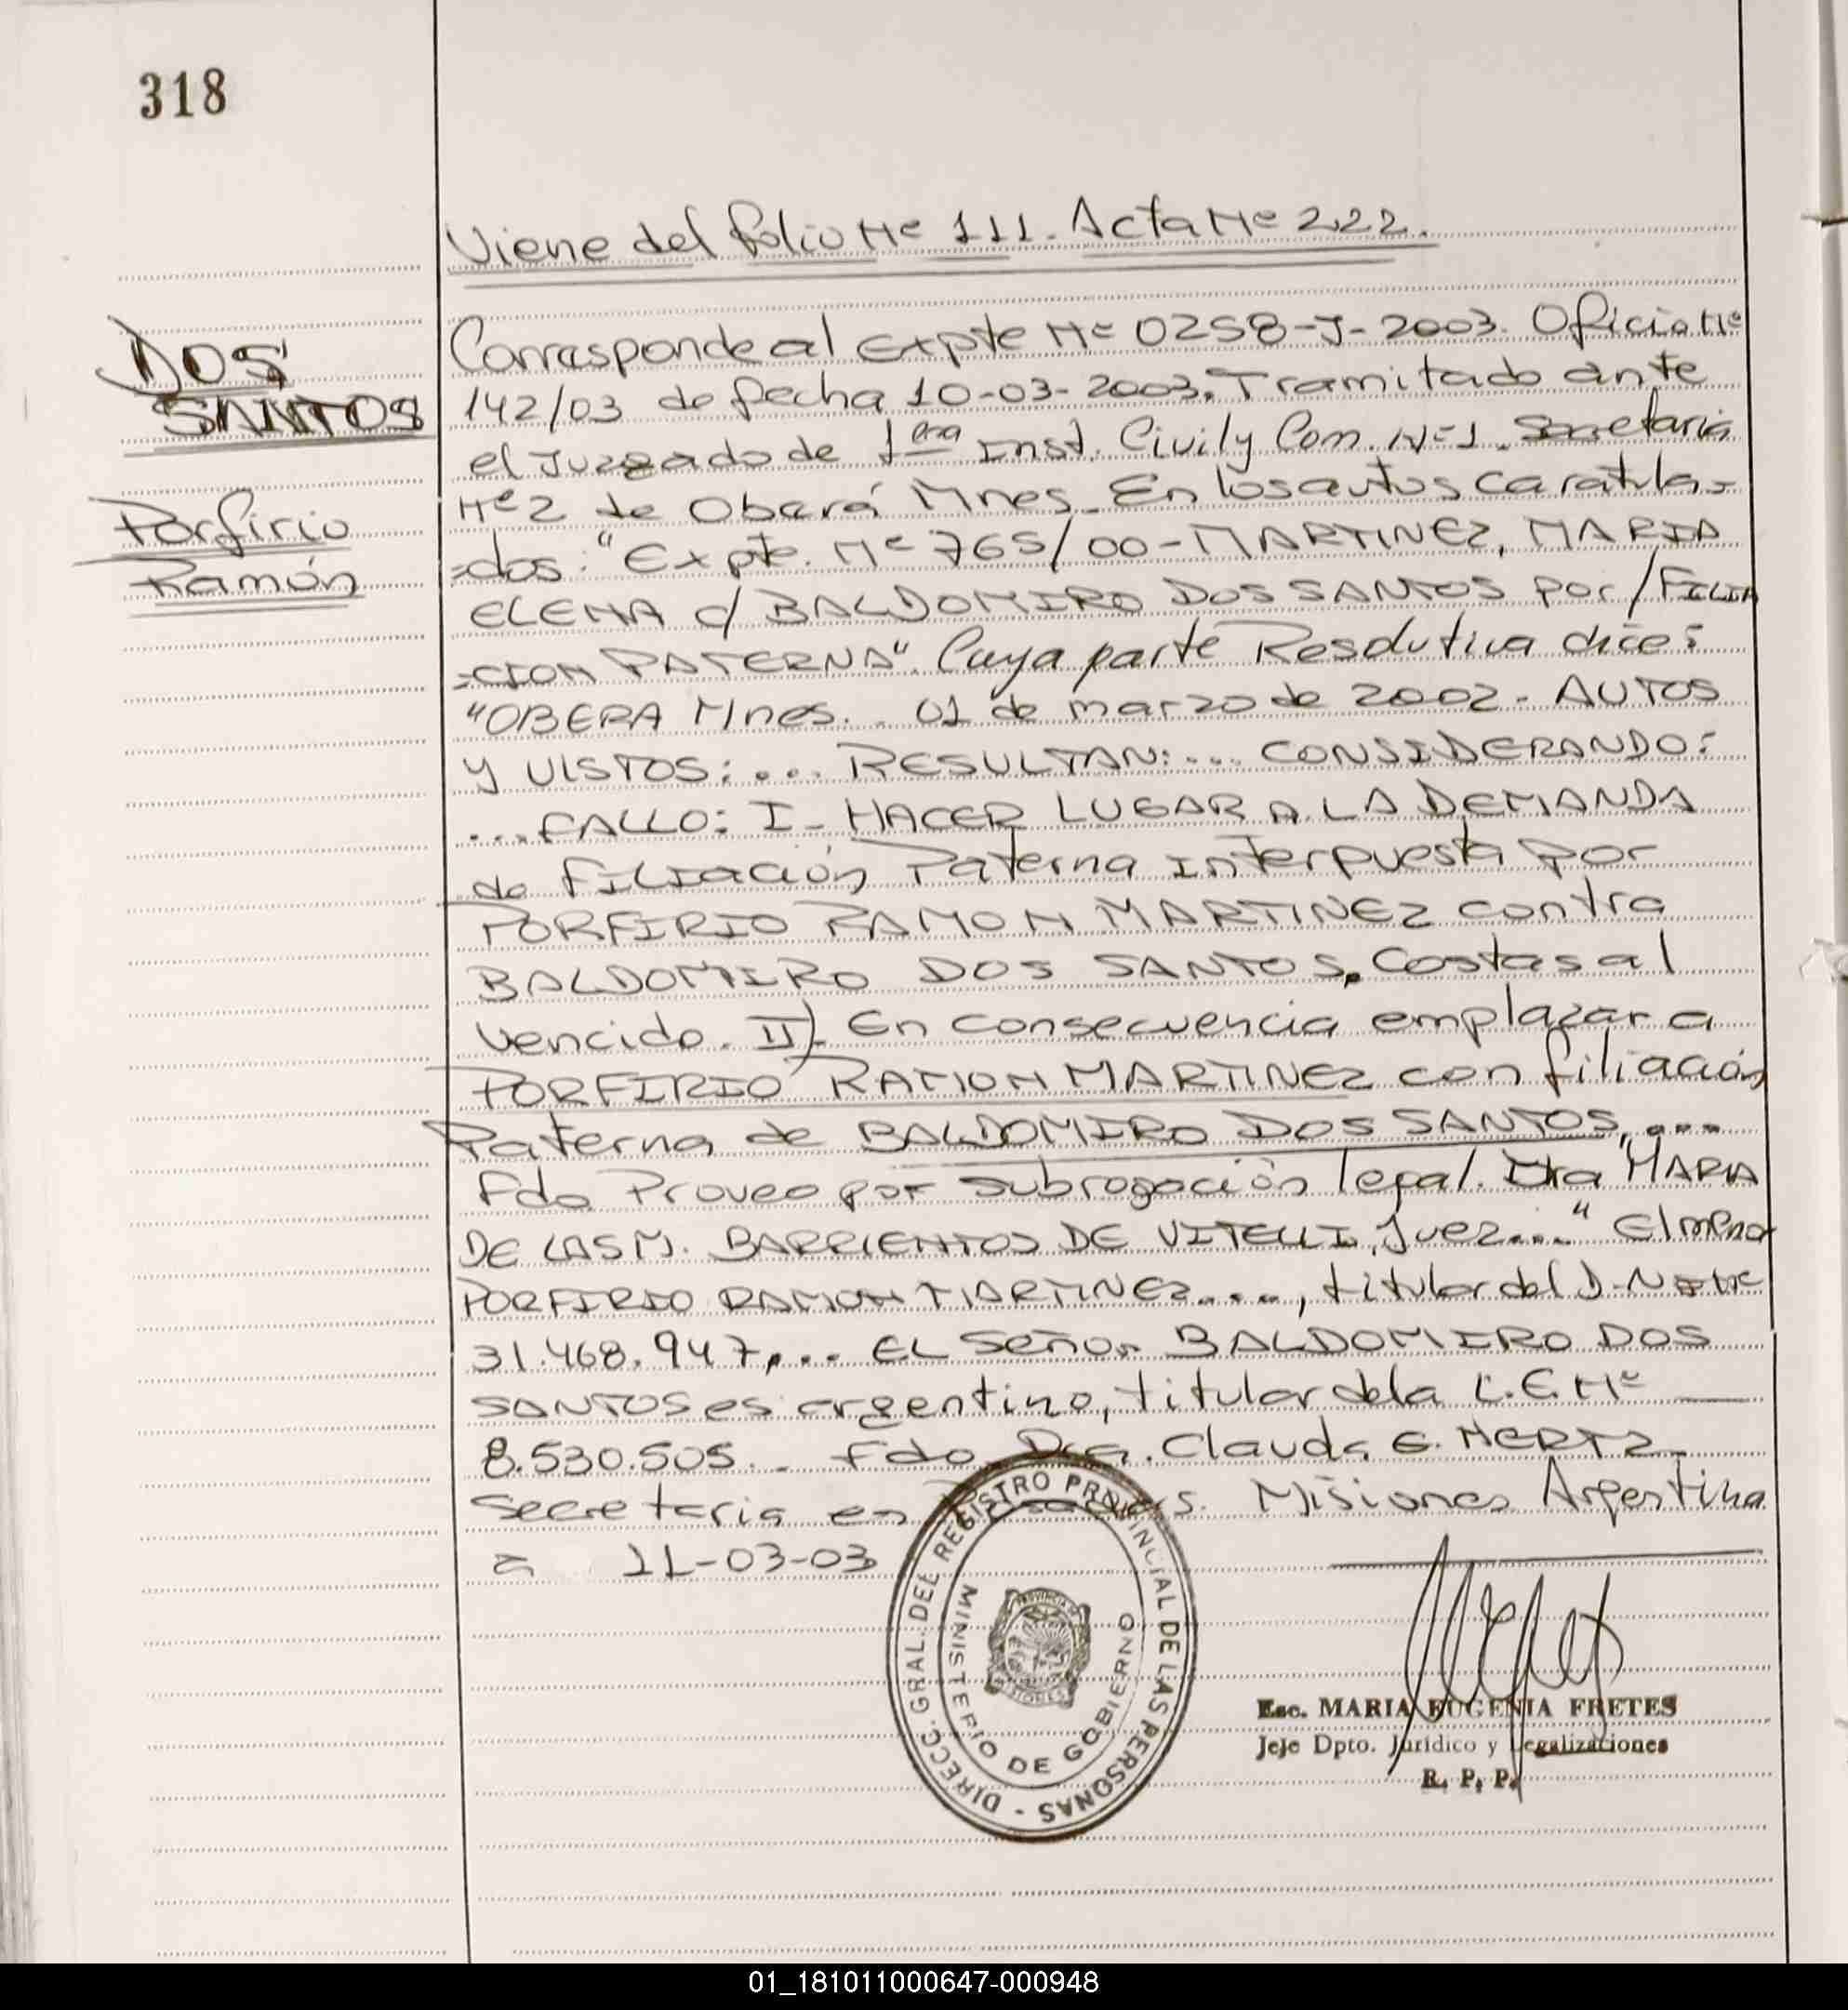 318
DOS
SANTOS
Porfirio
Ramón
Viene del folio Nº 111. Acta Nº 222.
Corresponde al Expte Nº 0258-J-2003. Oficio Nº
142/03 de fecha 10-03-2003. Tramitado ante
el Juzgado de 1era Inst. Civil y Com. Nº1. Secretaria
Nº2 de Oberá Mnes. En los autos caratula=
=dos: "Expte. Nº 765/00-MARTINEZ, MARIA
ELENA c/ BALDOMIRO DOS SANTOS por/FILIA
=CION PATERNA". Cuya parte Resolutiva dice:
"OBERA Mnes.. 01 de marzo de 2002- AUTOS
Y VISTOS:... RESULTAN:... CONSIDERANDO:
...FALLO: I- HACER LUGAR A LA DEMANDA
de FILIACIÓN Paterna interpuesta por
PORFIRIO RAMON MARTINEZ contra
BALDOMIRO DOS SANTOS, Costas al
vencido. II)- En consecuencia emplazar a
PORFIRIO RAMON MARTINEZ con filiación
Paterna de BALDOMIRO DOS SANTOS,...
Fdo Proveo por subrogación legal. Dra MARIA
DE LAS M. BARRIENTOS DE VITELLI, Juez..." El menor
PORFIRIO RAMON MARTINEZ...., titular del D.N.I. Nº
31.468.947,... EL Señor BALDOMIRO DOS
SANTOS es argentino, titular de la L.E. Nº
8.530.505.- Fdo Dra. Claudia E. HERTZ
Secretaria en Posadas. Misiones Argentina
a 11-03-03
DIRECC. GRAL. DEL REGISTRO PROVINCIAL DE LAS PERSONAS -
MINISTERIO DE GOBIERNO
Esc. MARIA EUGENIA FRETES
Jefe Dpto. Jurídico y Legalizaciones
R. P. P.
01_181011000647-000948